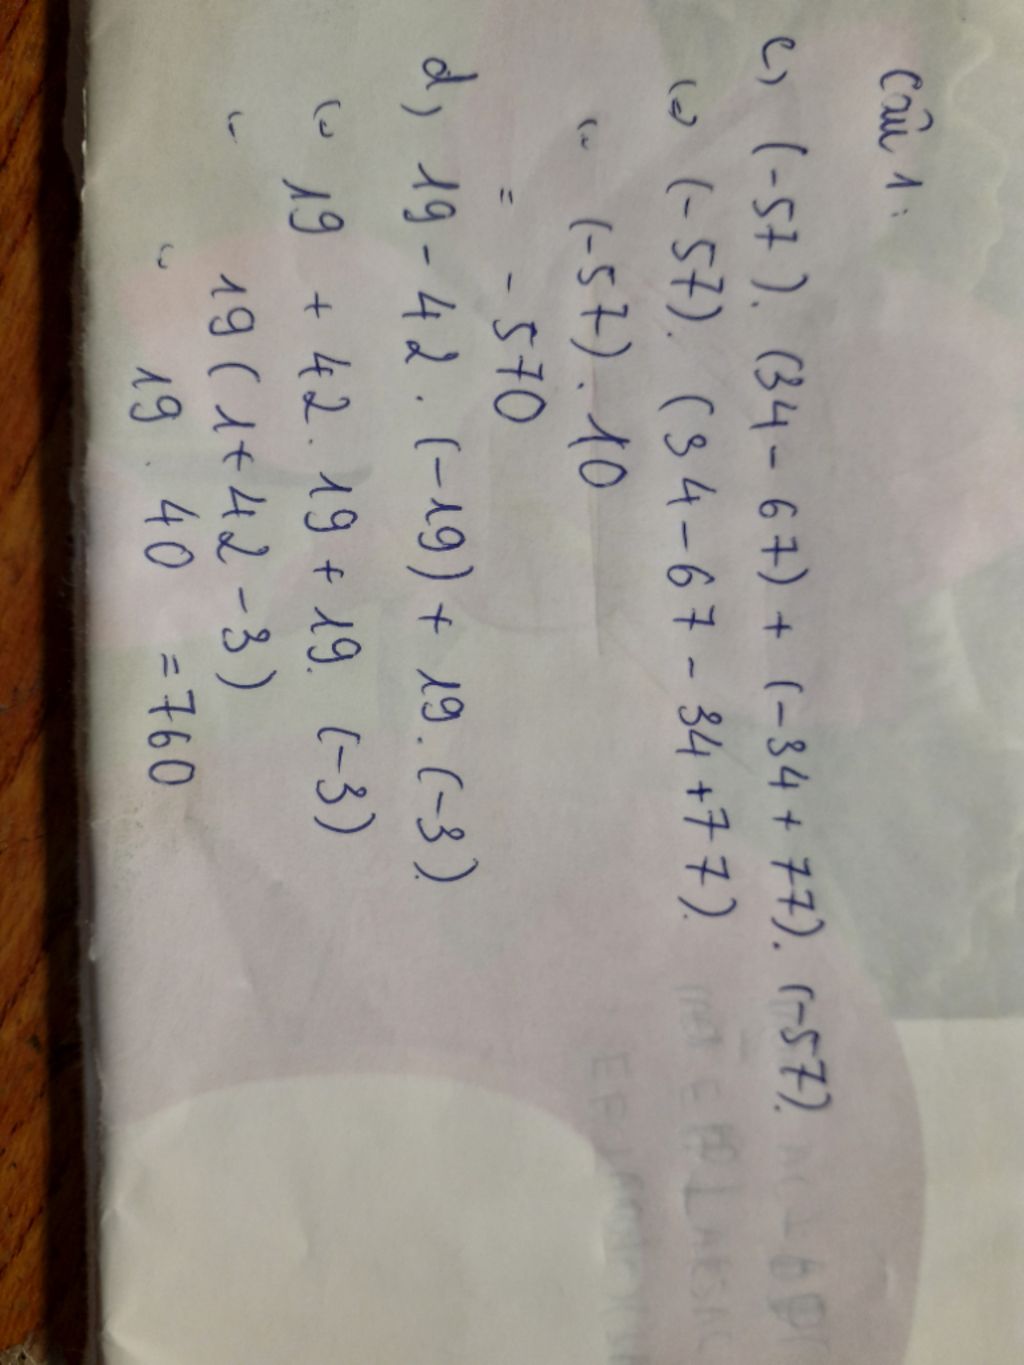 Câu 1:
c, (-57). (34 - 67) + (-34 + 77). (-57).
(=) (-57). (34 - 67 - 34 + 77).
" (-57). 10
= - 570
d, 19 - 42 . (-19) + 19. (-3).
(=) 19 + 42. 19 + 19. (-3)
" 19 (1 + 42 - 3)
" 19 . 40 = 760